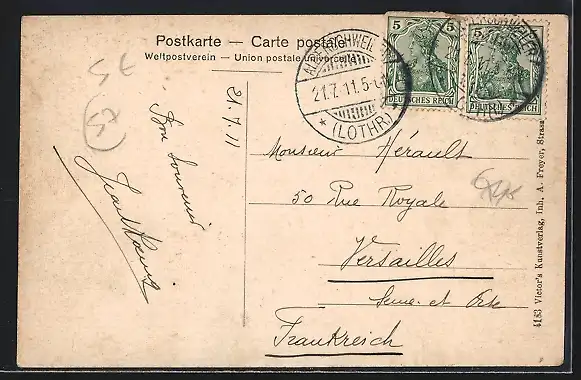 Postkarte — Carte postale
Weltpostverein — Union postale universelle
5 5
5
DEUTSCHES REICH
DEUTSCHES REICH
21.7.11.5-6
* (LOTHR) *
21.7.11
Bon souvenir
Monsieur Hérault
50 Rue Royale
Versailles
Seine et Oise
Frankreich
4183 Victor's Kunstverlag, Inh. A. Freyer, Strass